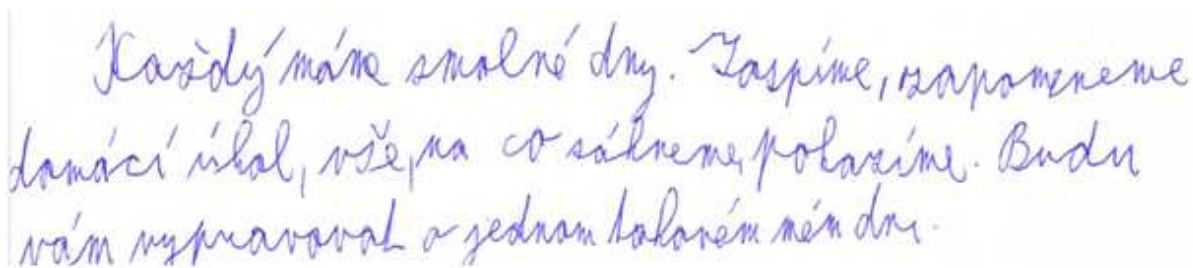 Každý máme smolné dny. Zaspíme, zapomeneme
domácí úkol, vše, na co sáhneme, pokazíme. Budu
vám vypravovat o jednom takovém mém dni.